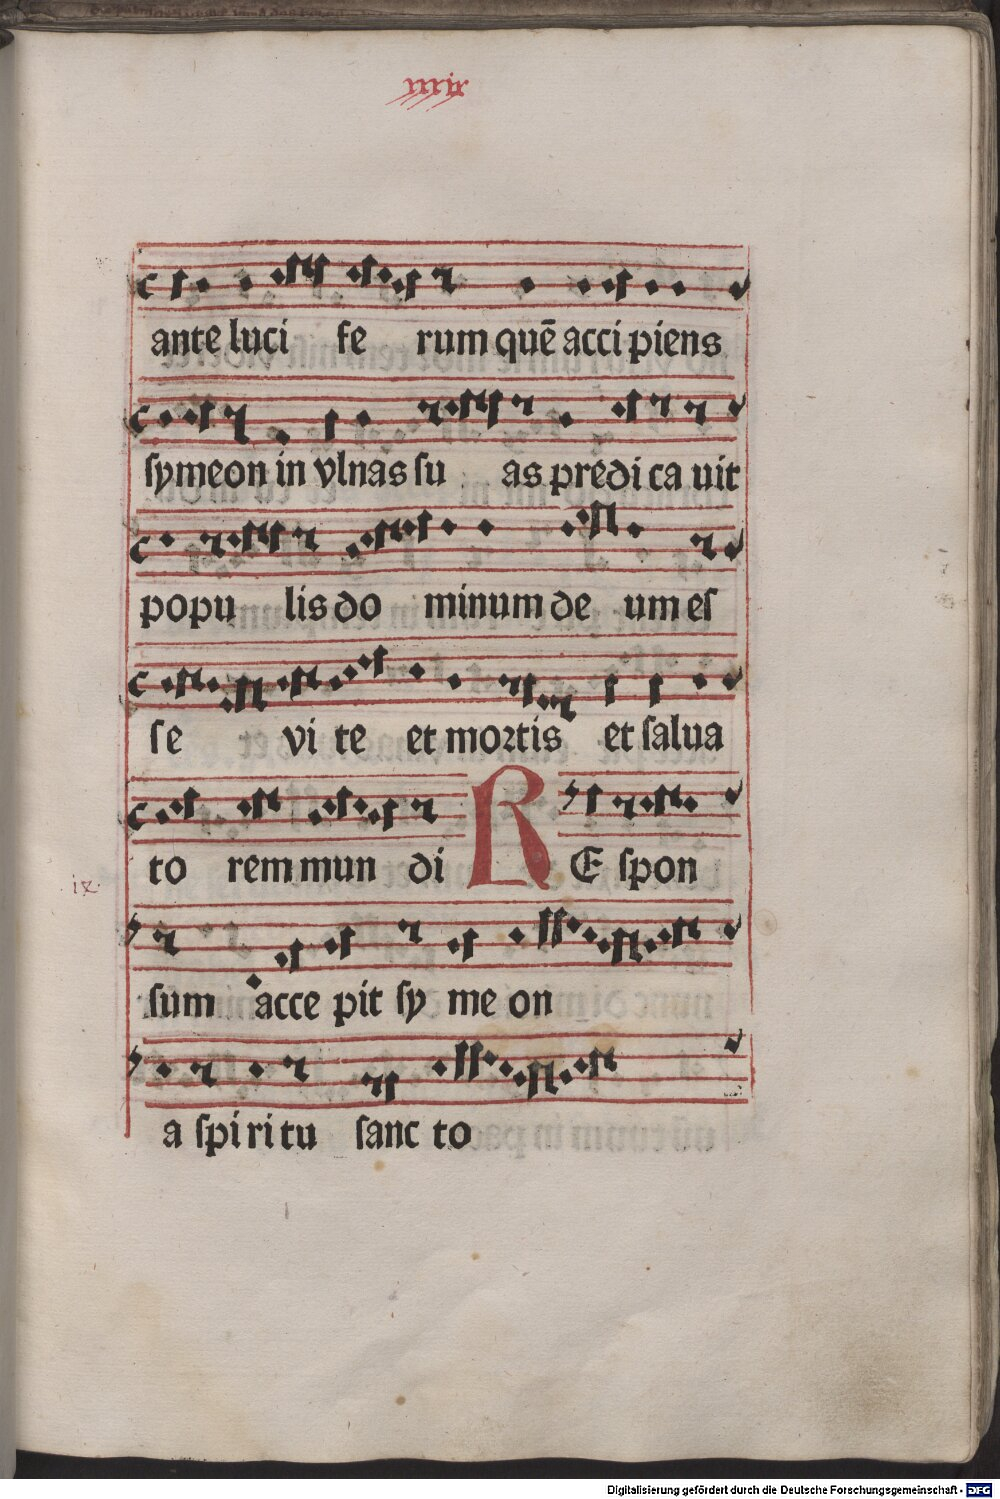 xxxix
ante luci fe rum quē acci piens
ſymeon in vlnas ſu as predi ca uit
popu lis do minum de um eſ
ſe vi te et mortis et ſalua
to rem mun di R E ſpon
ix.
ſum acce pit ſy me on
a ſpi ri tu ſanc to
Digitalisierung gefördert durch die Deutsche Forschungsgemeinschaft - DFG